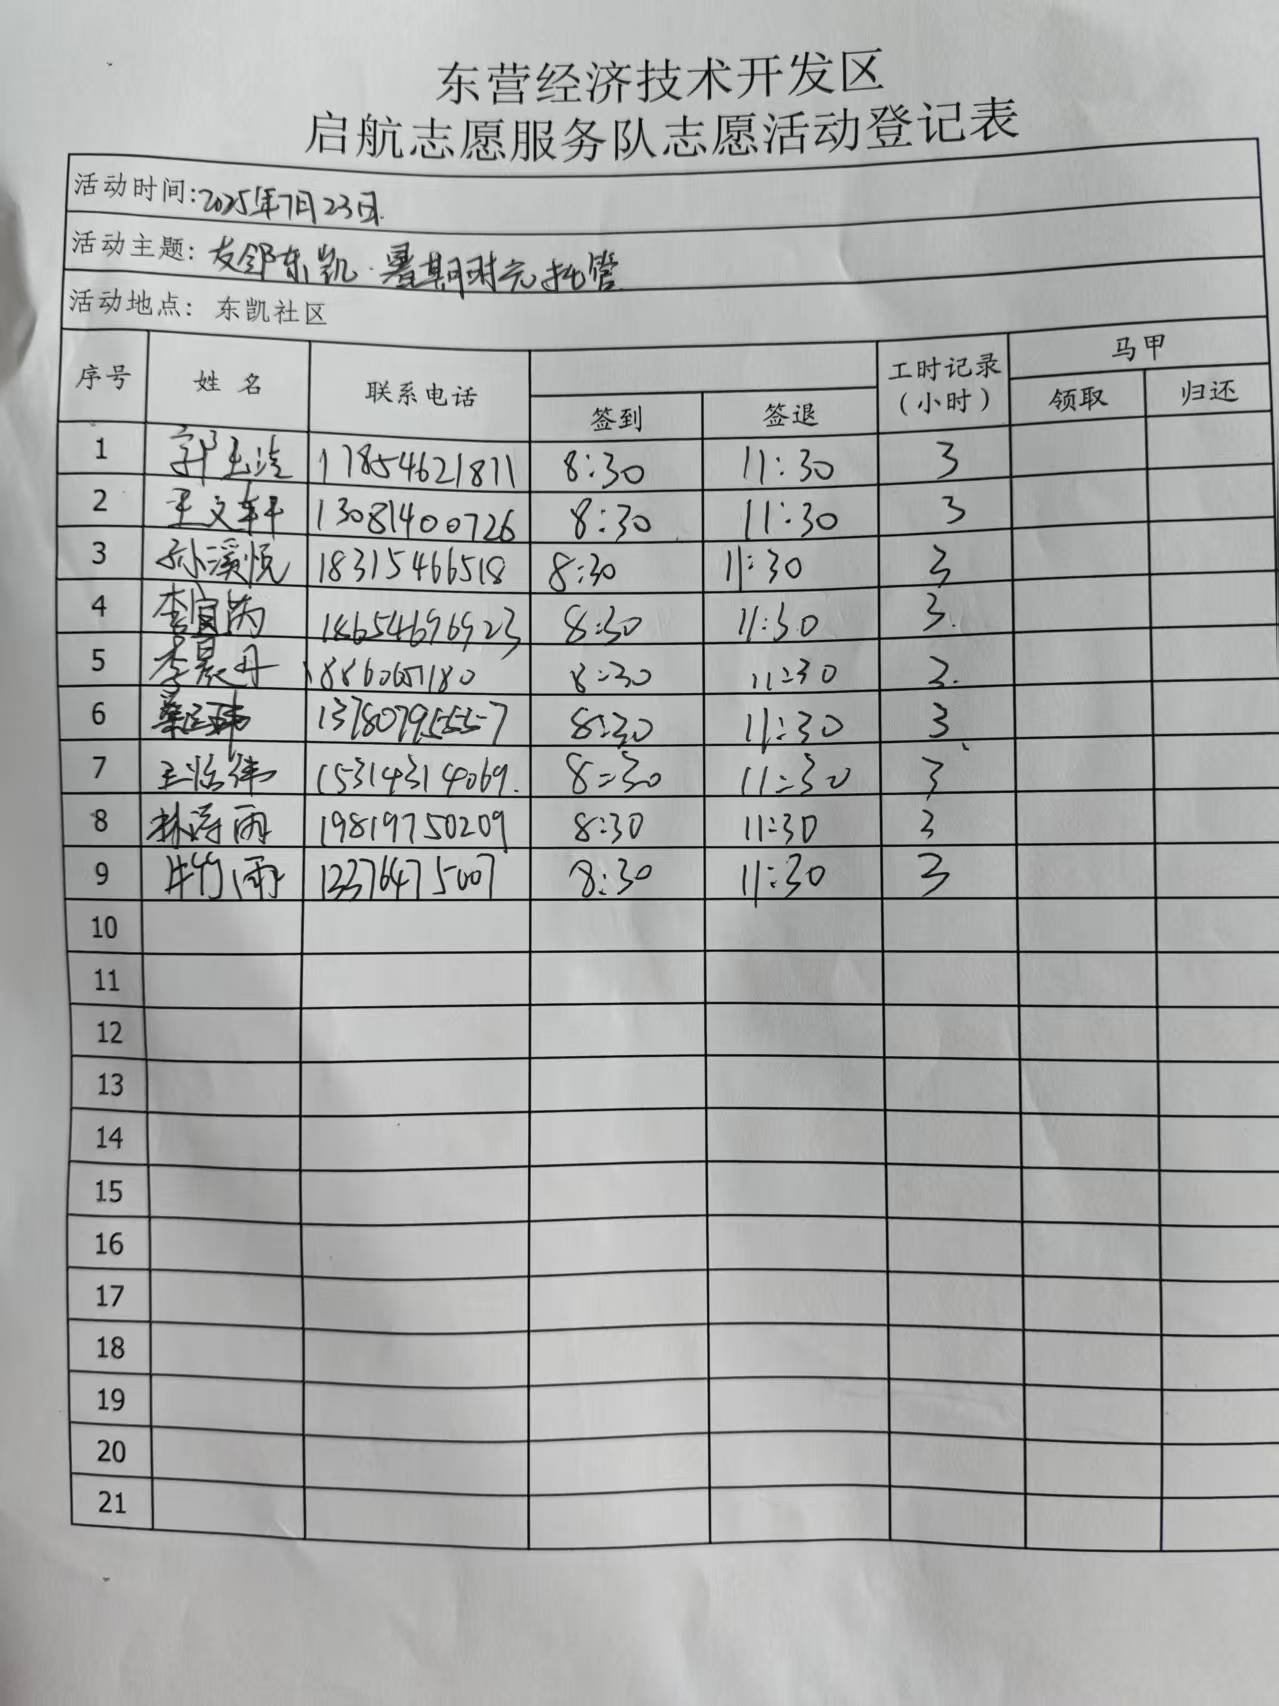 东营经济技术开发区
启航志愿服务队志愿活动登记表
活动时间:2025年7月23日
活动主题:友邻东凯·暑期时光托管
活动地点:东凯社区
序号 姓名 联系电话 签到 签退 工时记录(小时) 马甲 领取 归还
1 郭玉洁 17854621811 8:30 11:30 3
2 王文轩 13081400726 8:30 11:30 3
3 孙溪悦 18315466518 8:30 11:30 3
4 李宜芮 18654696923 8:30 11:30 3.
5 李晨丹 8:30 11:30 3.
6 13780795557 8:30 11:30 3
7 15314314069. 8:30 11:30 3
8 林涛雨 19819750209 8:30 11:30 3
9 牛竹雨 13376475007 8:30 11:30 3
10
11
12
13
14
15
16
17
18
19
20
21